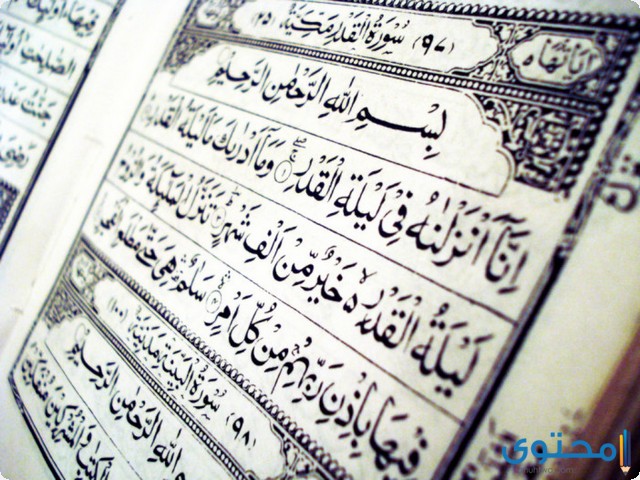 (٩٧) سُوْرَةُ الْقَدْرِ مَكِّيَّةٌ (٢٥)
اٰيَاتُهَا ٥
بِسْمِ اللّٰهِ الرَّحْمٰنِ الرَّحِيْمِ
اِنَّآ اَنْزَلْنٰهُ فِيْ لَيْلَةِ الْقَدْرِ ۝١ وَمَآ اَدْرٰىكَ مَا لَيْلَةُ الْقَدْرِ
لَيْلَةُ الْقَدْرِ ەۙ خَيْرٌ مِّنْ اَلْفِ شَهْرٍ ۝٣ تَنَزَّلُ الْمَلٰٓئِكَةُ وَالرُّوْحُ
فِيْهَا بِاِذْنِ رَبِّهِمْ مِّنْ كُلِّ اَمْرٍ ۝٤ سَلٰمٌ هِيَ حَتّٰى مَطْلَعِ
(٩٨) سُوْرَةُ الْبَيِّنَةِ مَدَنِيَّةٌ (١٠٠)
اللّٰهِ الرَّحْمٰنِ الرَّحِيْمِ
الْكِتٰبِ وَالْمُشْرِكِيْنَ مُنْفَكِّيْنَ
الصّٰلِحٰتِ
جَنّٰتُ
محتوى